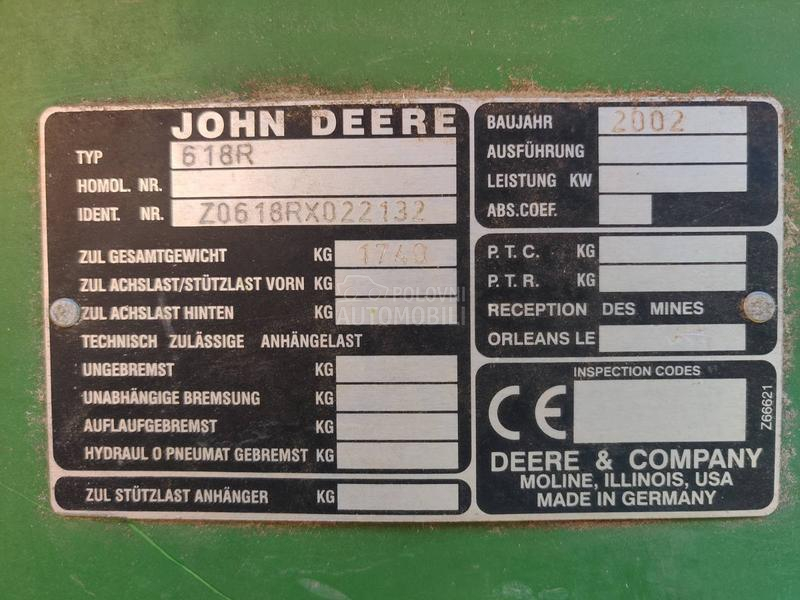 JOHN DEERE
TYP 618R
HOMOL. NR.
IDENT. NR. Z0618RX022132
ZUL GESAMTGEWICHT KG 1740
ZUL ACHSLAST/STÜTZLAST VORN KG
ZUL ACHSLAST HINTEN KG
TECHNISCH ZULÄSSIGE ANHÄNGELAST
UNGEBREMST KG
UNABHÄNGIGE BREMSUNG KG
AUFLAUFGEBREMST KG
HYDRAUL O PNEUMAT GEBREMST KG
ZUL STÜTZLAST ANHÄNGER KG
BAUJAHR 2002
AUSFÜHRUNG
LEISTUNG KW
ABS.COEF.
P. T. C. KG
P. T. R. KG
RECEPTION DES MINES
ORLEANS LE
INSPECTION CODES
CE
Z66621
DEERE & COMPANY
MOLINE, ILLINOIS, USA
MADE IN GERMANY
POLOVNI
AUTOMOBILI